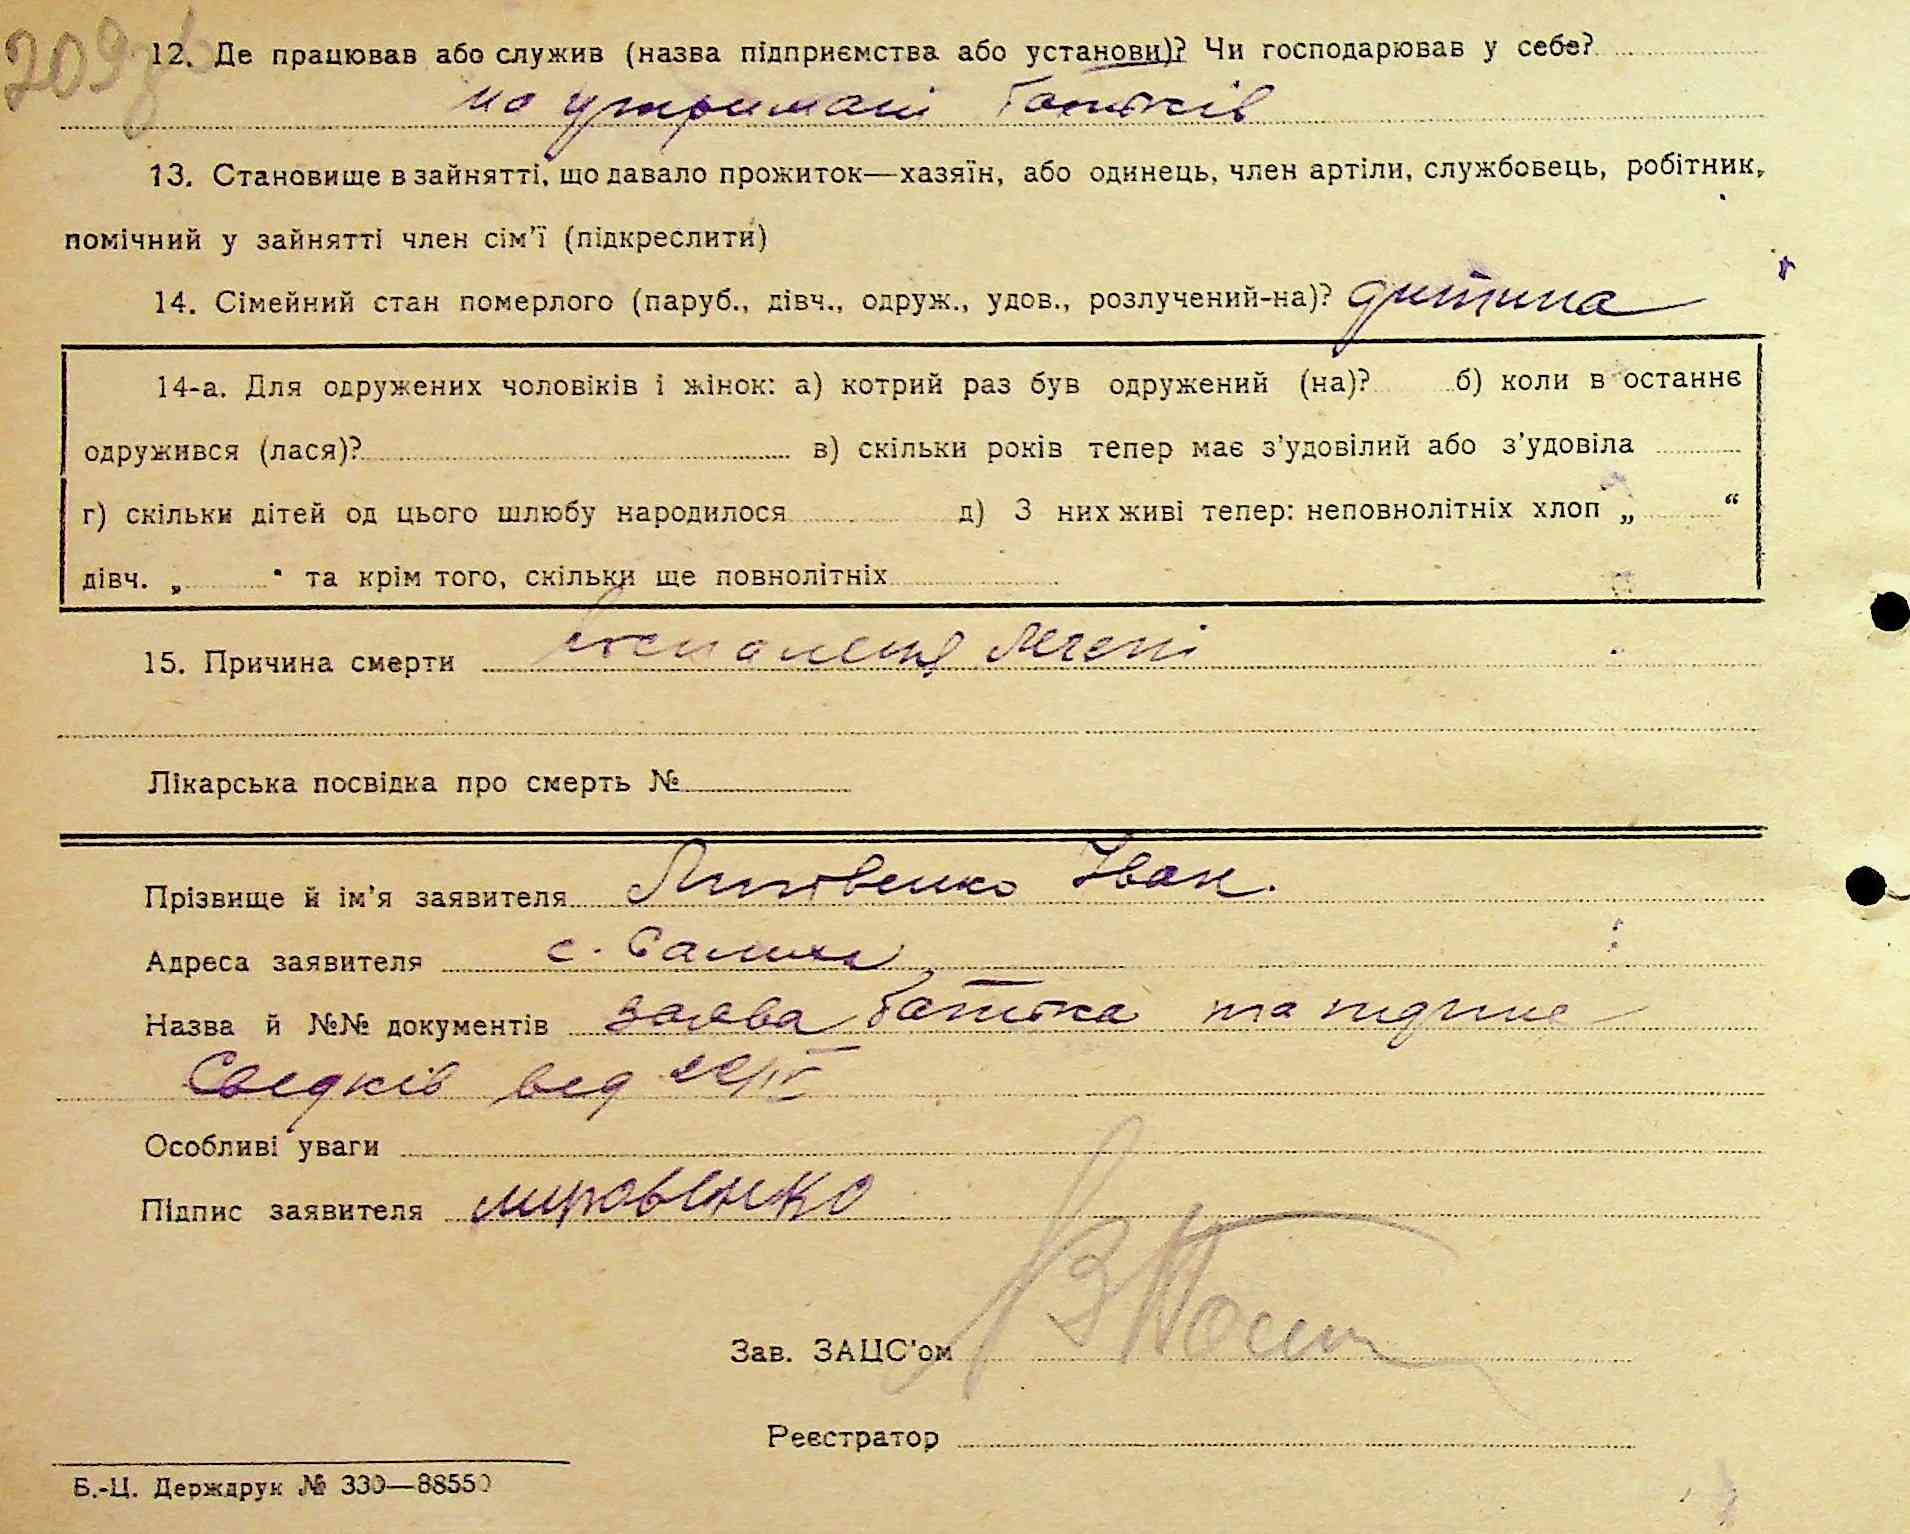 209зв
12. Де працював або служив (назва підприємства або установи)? Чи господарював у себе?
на утримані батьків
13. Становище в зайнятті, що давало прожиток—хазяїн, або одинець, член артіли, службовець, робітник,
помічний у зайнятті член сім'ї (підкреслити)
14. Сімейний стан померлого (паруб., дівч., одруж., удов., розлучений-на)? дитина
14-а. Для одружених чоловіків і жінок: а) котрий раз був одружений (на)? б) коли в останнє
одружився (лася)? в) скільки років тепер має з'удовілий або з'удовіла
г) скільки дітей од цього шлюбу народилося д) З них живі тепер: неповнолітніх хлоп „ “
дівч. „ “ та крім того, скільки ще повнолітніх
15. Причина смерти воспаленія легені
Лікарська посвідка про смерть №
Прізвище й ім'я заявителя Литвенко Іван.
Адреса заявителя с.
Назва й №№ документів заява батька та
Свідків від
Особливі уваги
Підпис заявителя
Зав. ЗАЦС'ом
Реєстратор
Б.-Ц. Держдрук № 330—88550